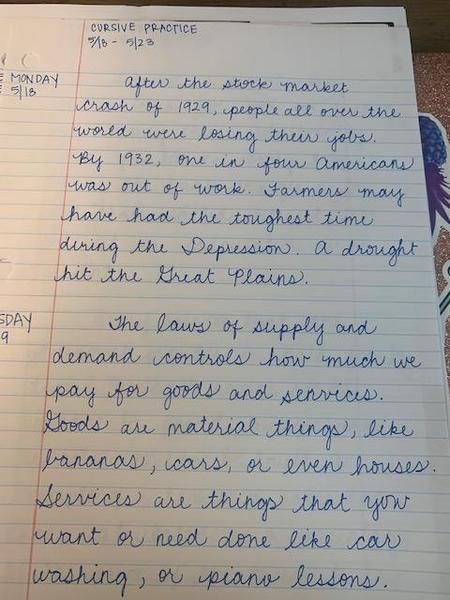 CURSIVE PRACTICE
5/18 - 5/23
MONDAY
5/18
After the stock market
crash of 1929, people all over the
world were losing their jobs.
By 1932, one in four Americans
was out of work. Farmers may
have had the toughest time
during the Depression. A drought
hit the Great Plains.
SDAY
9
The laws of supply and
demand controls how much we
pay for goods and senrvices.
Goods are material things, like
bananas, cars, or even houses.
Services are things that you
want or need done like car
washing, or piano lessons.